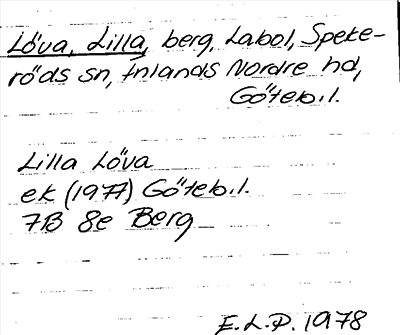 Löva, Lilla, berg, Labol, Speke-
röds sn, Inlands Nordre hd,
Göteb.l.
Lilla Löva
ek (1977) Göteb.l.
7B 8e Berg
E.L.P. 1978